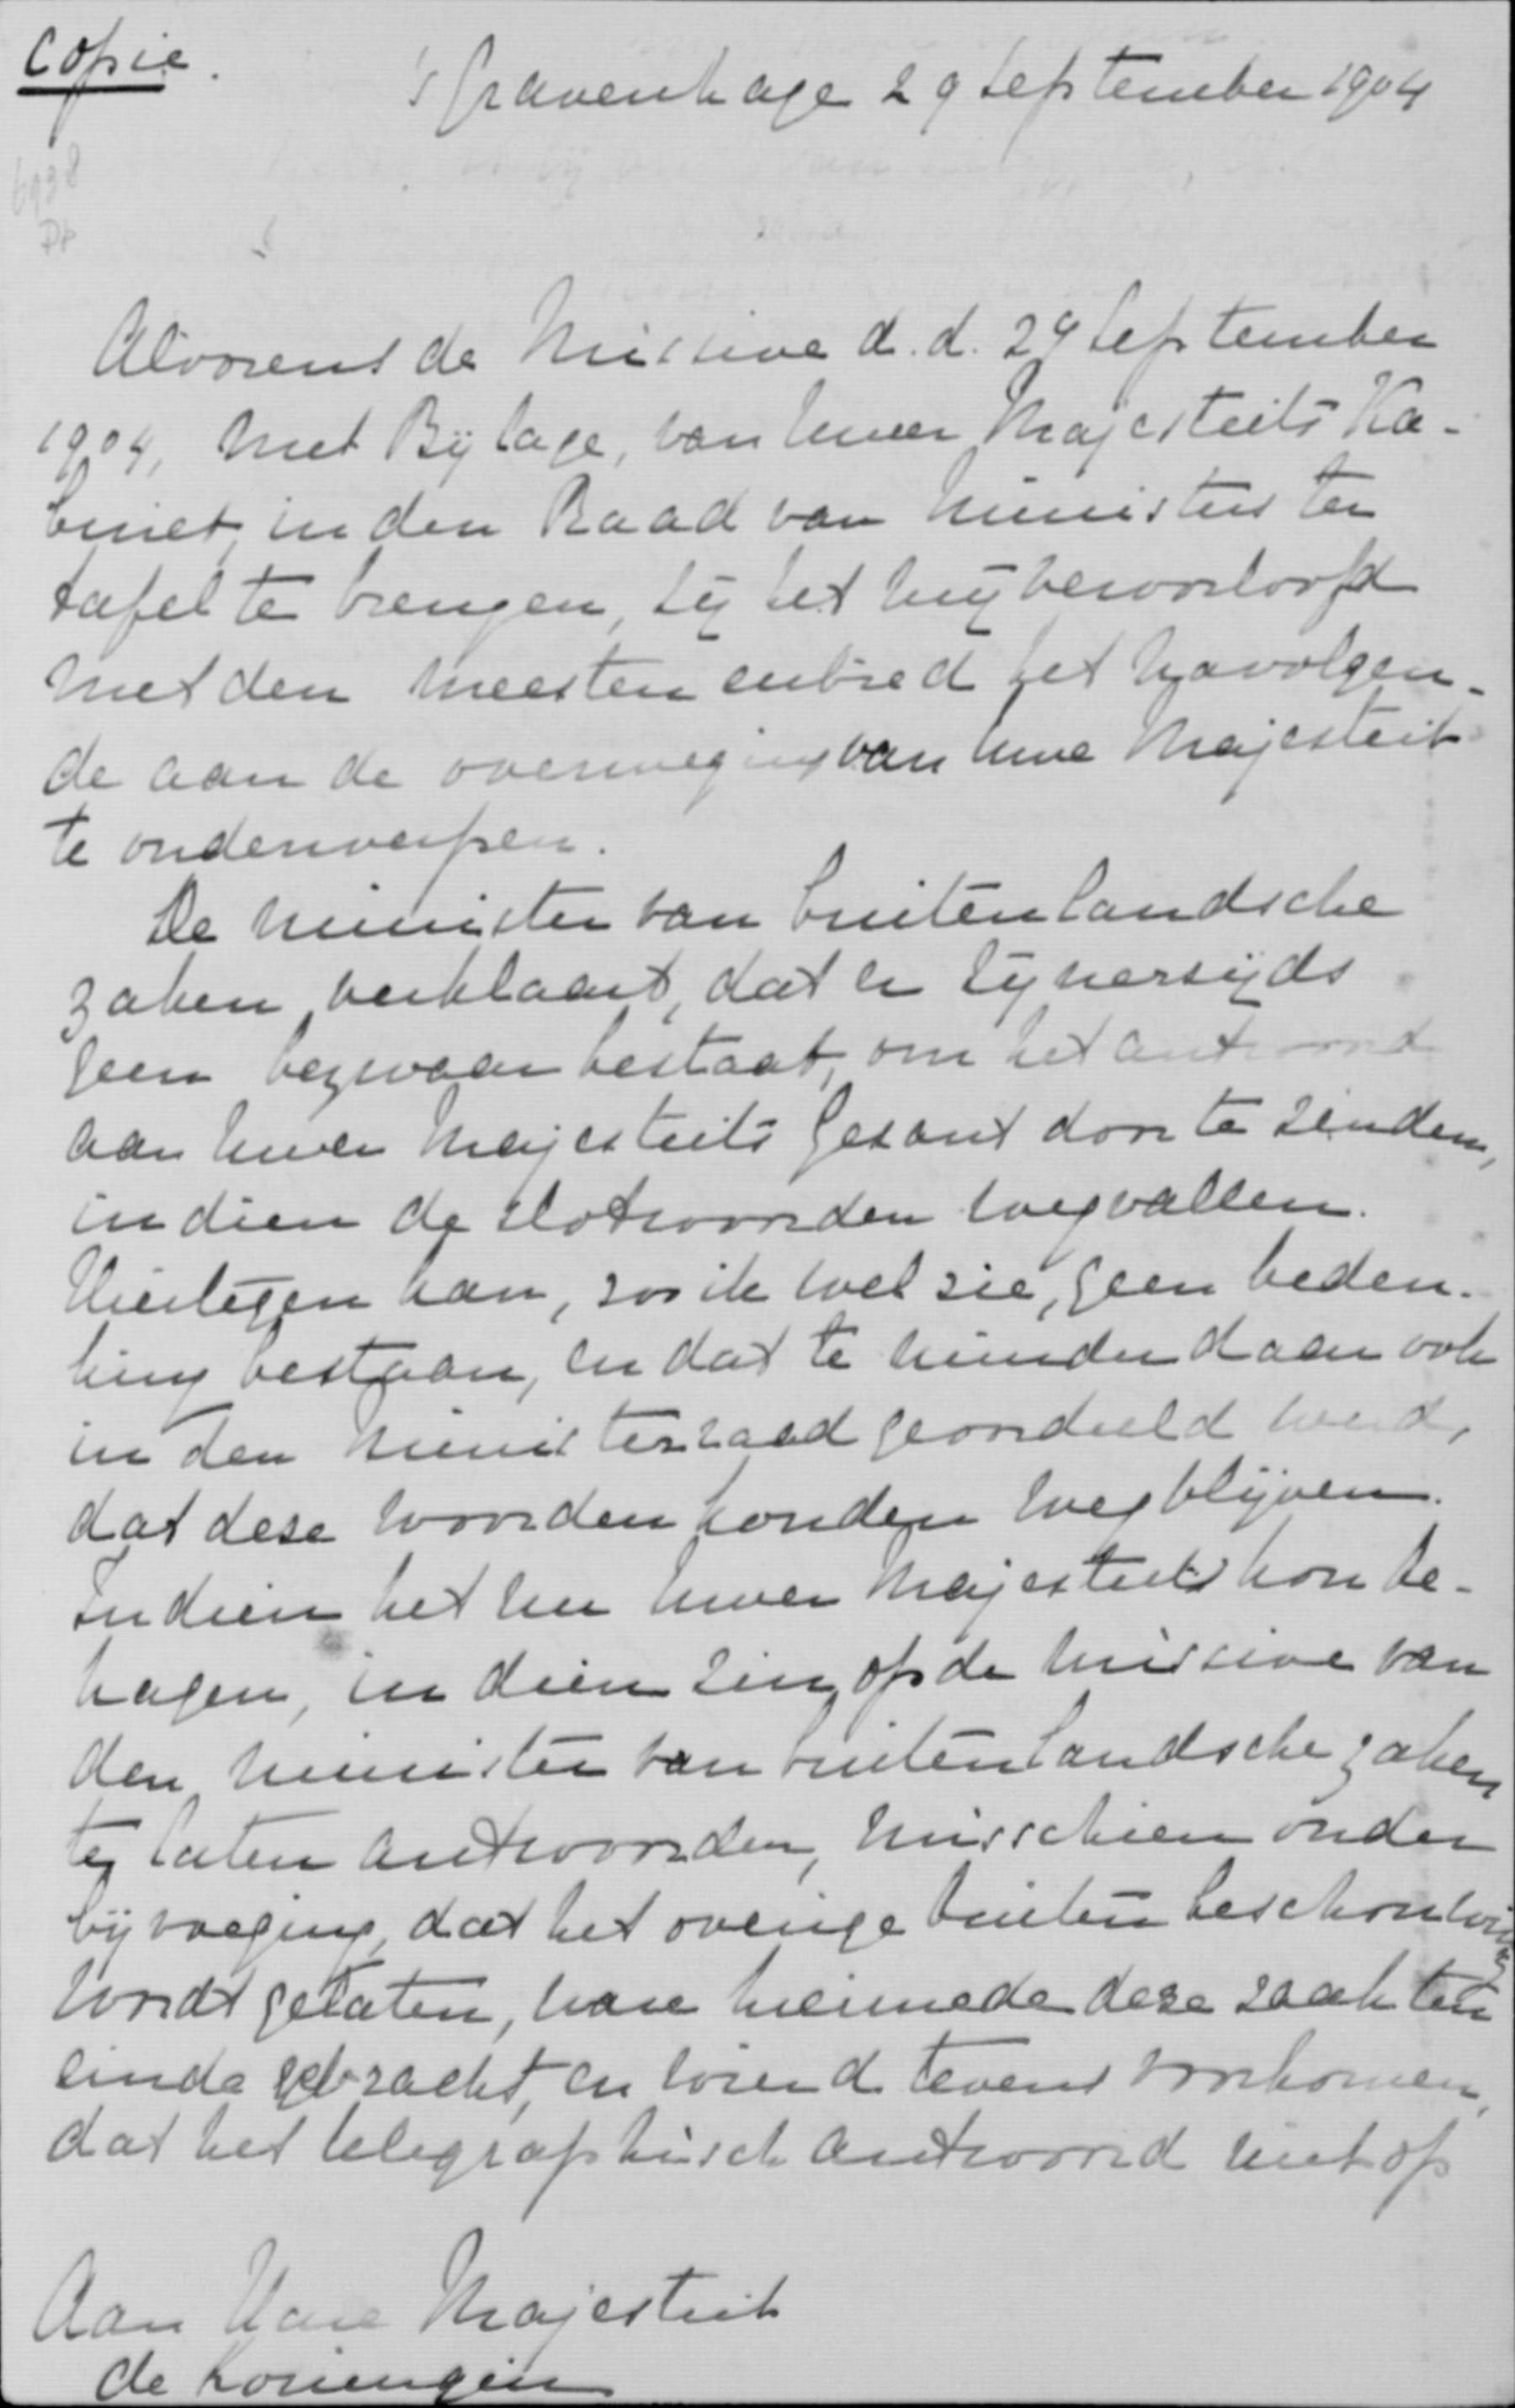 Copie.
's Gravenhage 29 September 1904
6938
Alvorens de Missive d.d. 29 September
1904, met Bijlage, van Uwer Majesteits Ka-
binet, in den Raad van Ministers ter
tafel te brengen, zij het mij veroorloofd
met den meesten eerbied het navolgen-
de aan de overweging van Uwe Majesteit
te onderwerpen.
De minister van buitenlandsche
zaken verklaart, dat er zijnerzijds
geen bezwaar bestaat, om het antwoord
aan Uwer Majesteits Gezant door te zenden,
indien de slotwoorden wegvallen.
Hiertegen kan, zoo ik wel zie, geen beden-
king bestaan, en dat te minder daar ook
in den ministerraad geoordeeld werd,
dat deze woorden konden wegblijven.
Indien het nu Uwer Majesteits kon be-
hagen, in dien zin, op de missive van
den minister van buitenlandsche zaken
te laten antwoorden, misschien onder
bijvoeging, dat het overige buiten beschouwing
wordt gelaten, ware hiermede deze zaak ten
einde gebracht, en wierd tevens voorkomen,
dat het telegraphisch antwoord niet op
Aan Hare Majesteit
de Koningin